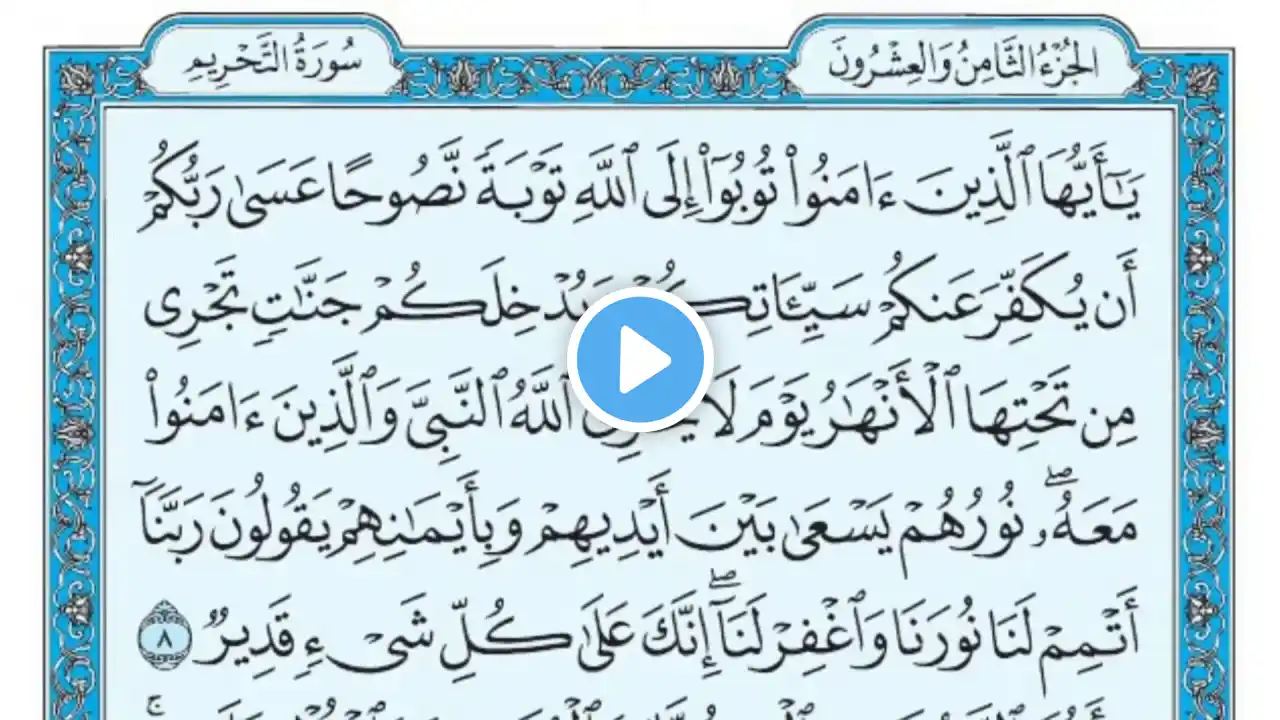 الجُزْءُ الثَّامِنُ وَالْعِشْرُونَ
سُورَةُ التَّحْرِيمِ
يَـٰٓأَيُّهَا ٱلَّذِينَ ءَامَنُوا۟ تُوبُوٓا۟ إِلَى ٱللَّهِ تَوْبَةً نَّصُوحًا عَسَىٰ رَبُّكُمْ
أَن يُكَفِّرَ عَنكُمْ سَيِّـَٔاتِكُمْ وَيُدْخِلَكُمْ جَنَّـٰتٍ تَجْرِى
مِن تَحْتِهَا ٱلْأَنْهَـٰرُ يَوْمَ لَا ٱللَّهُ ٱلنَّبِىَّ وَٱلَّذِينَ ءَامَنُوا۟
مَعَهُۥۖ نُورُهُمْ يَسْعَىٰ بَيْنَ أَيْدِيهِمْ وَبِأَيْمَـٰنِهِمْ يَقُولُونَ رَبَّنَآ
أَتْمِمْ لَنَا نُورَنَا وَٱغْفِرْ لَنَآۖ إِنَّكَ عَلَىٰ كُلِّ شَىْءٍ قَدِيرٌ ٨